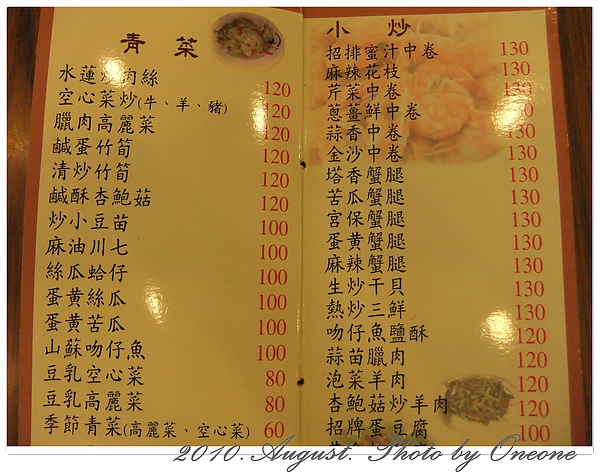 青菜
水蓮炒肉絲 120
空心菜炒(牛、羊、豬) 120
臘肉高麗菜 120
鹹蛋竹筍 120
清炒竹筍 120
鹹酥杏鮑菇 120
炒小豆苗 100
麻油川七 100
絲瓜蛤仔 100
蛋黃絲瓜 100
蛋黃苦瓜 100
山蘇吻仔魚 100
豆乳空心菜 80
豆乳高麗菜 80
季節青菜(高麗菜、空心菜) 60
小炒
招排蜜汁中卷 130
麻辣花枝 130
芹菜中卷 130
蔥薑鮮中卷 130
蒜香中卷 130
金沙中卷 130
塔香蟹腿 130
苦瓜蟹腿 130
宮保蟹腿 130
蛋黃蟹腿 130
麻辣蟹腿 130
生炒干貝 130
熱炒三鮮 130
吻仔魚鹽酥 120
蒜苗臘肉 120
泡菜羊肉 120
杏鮑菇炒羊肉 120
招牌蛋豆腐 100
2010. August. Photo by Oneone